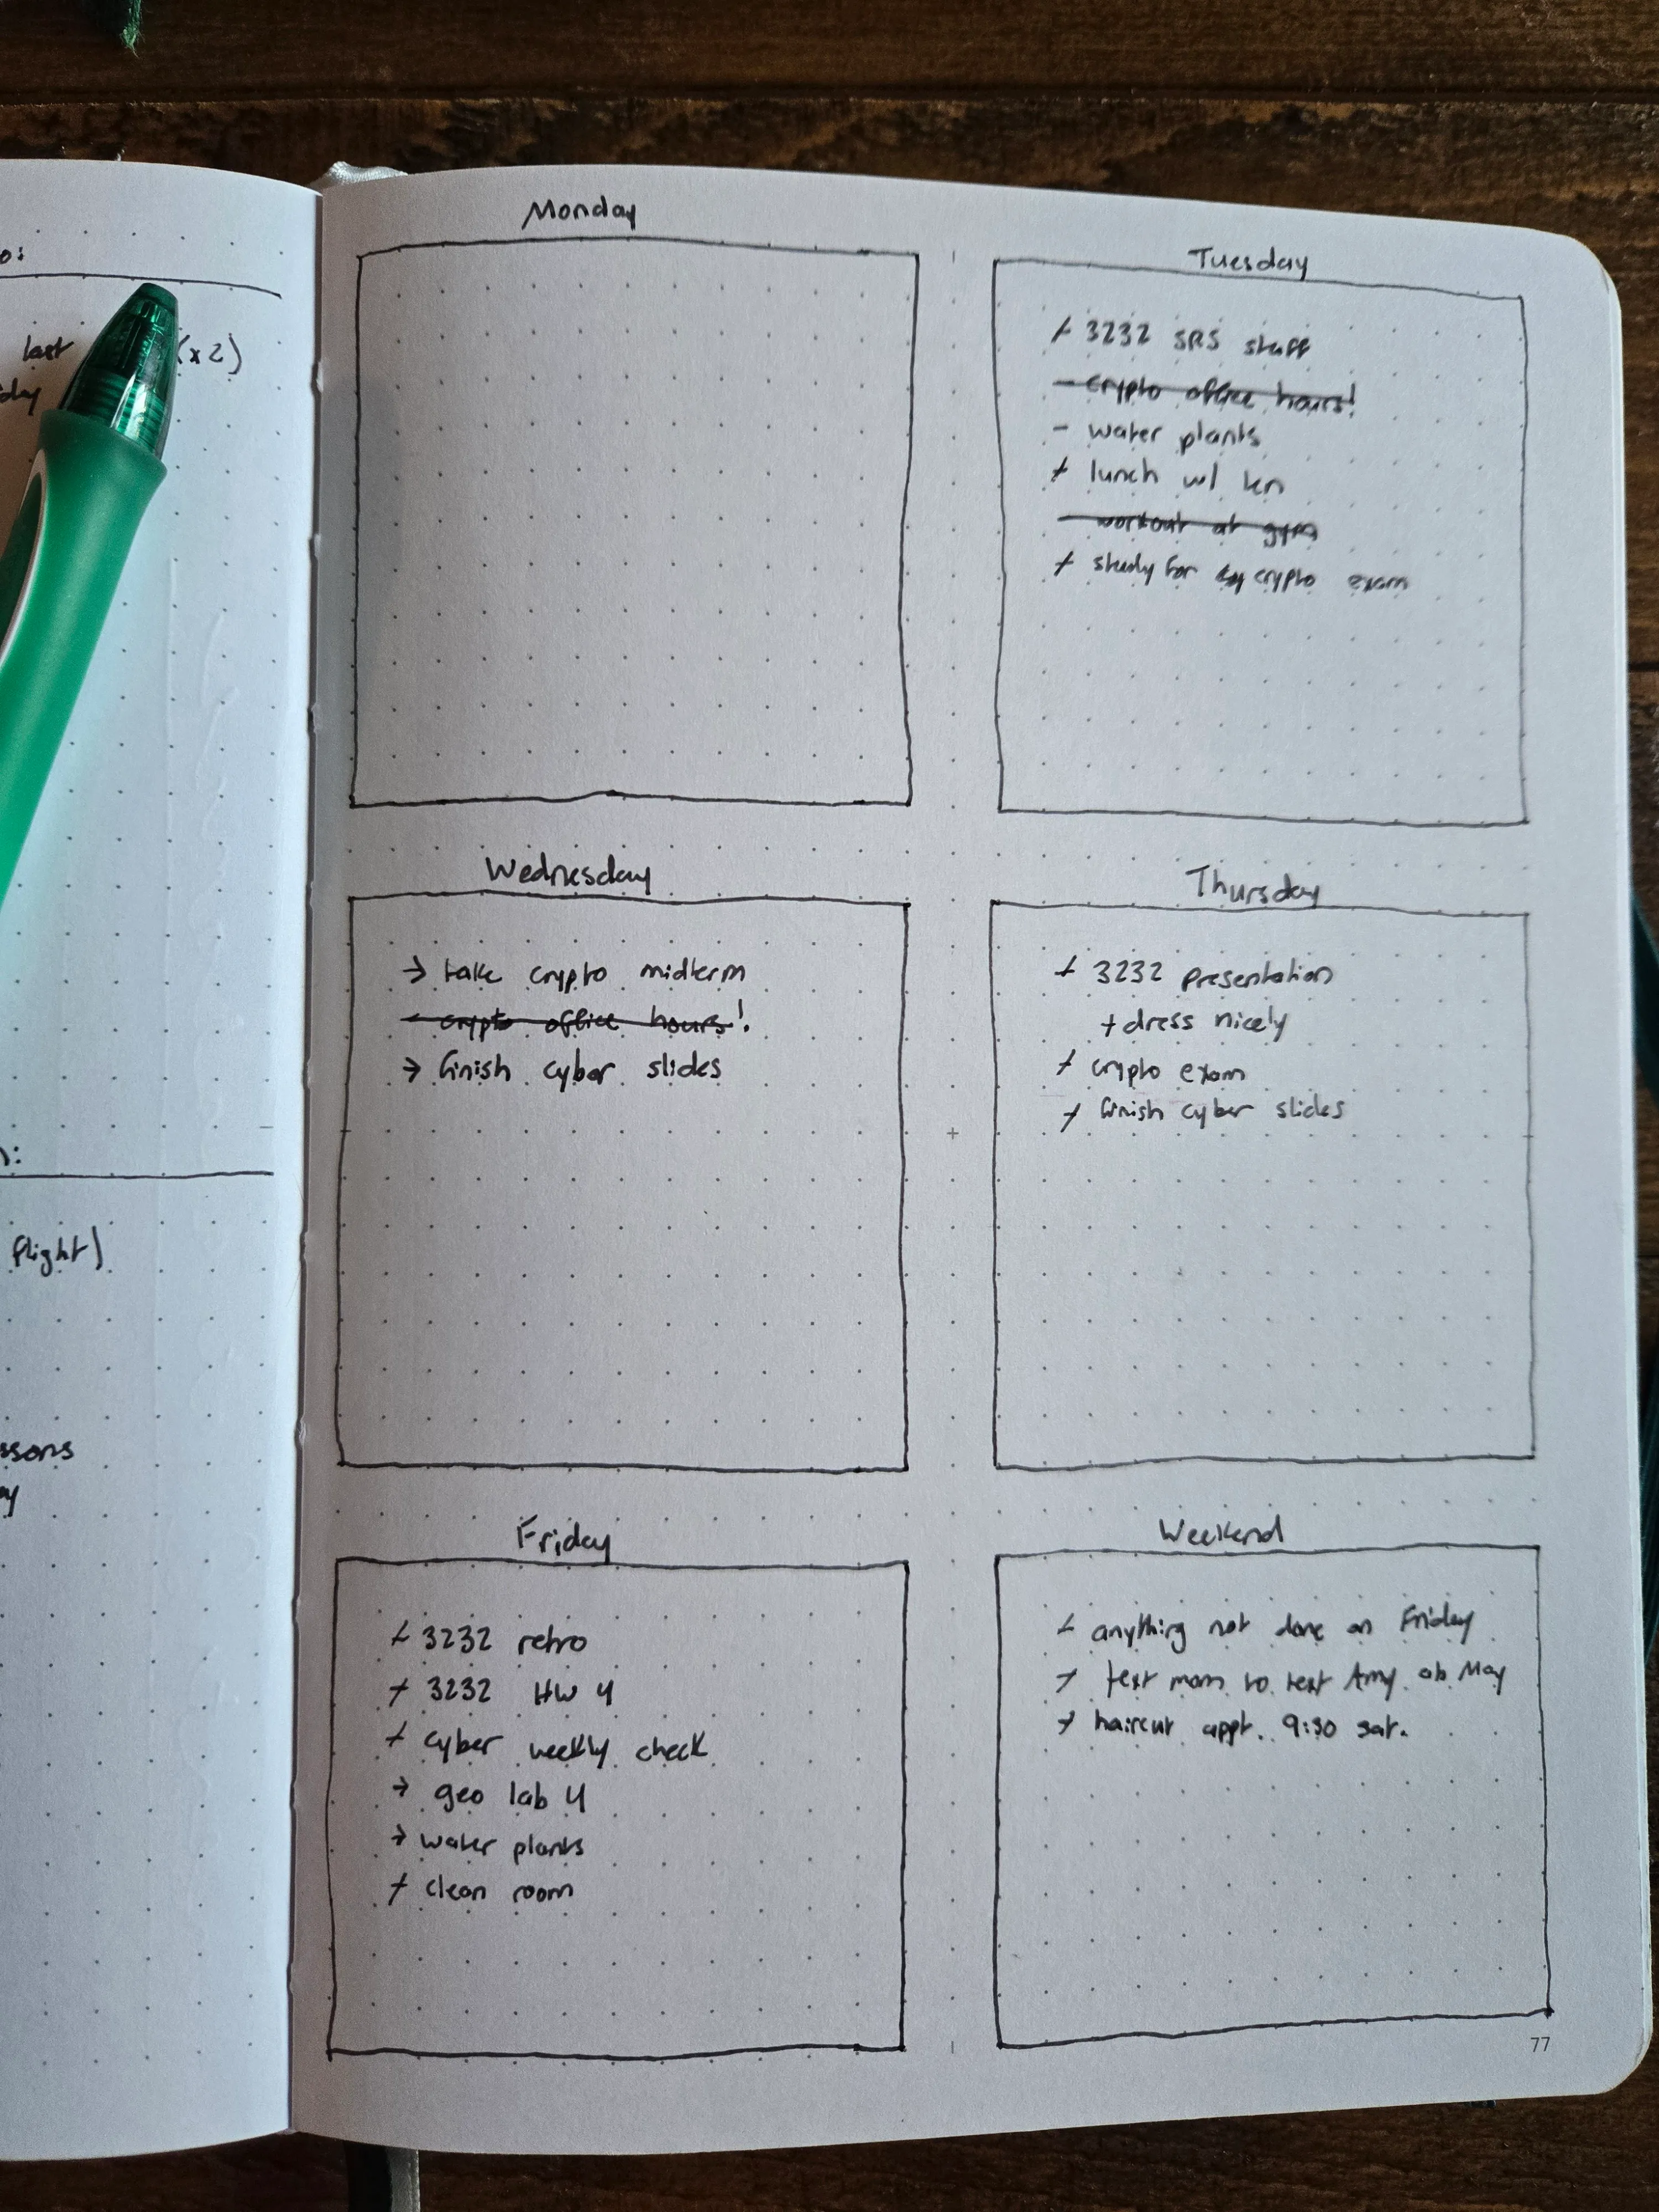 o:
last (x2)
day
n:
flight)
ssons
y
Monday
Tuesday
+ 3232 SRS stuff
- crypto office hours!
- water plants
+ lunch w/ ken
- workout at gym
+ study for crypto exam
Wednesday
→ take crypto midterm
- crypto office hours!
→ finish cyber slides
Thursday
+ 3232 presentation
+ dress nicely
+ crypto exam
+ finish cyber slides
Friday
+ 3232 retro
+ 3232 HW 4
+ cyber weekly check
→ geo lab 4
→ water plants
+ clean room
Weekend
+ anything not done on Friday
+ text mom to text Amy ab May
+ haircut appt. 9:30 sat.
77